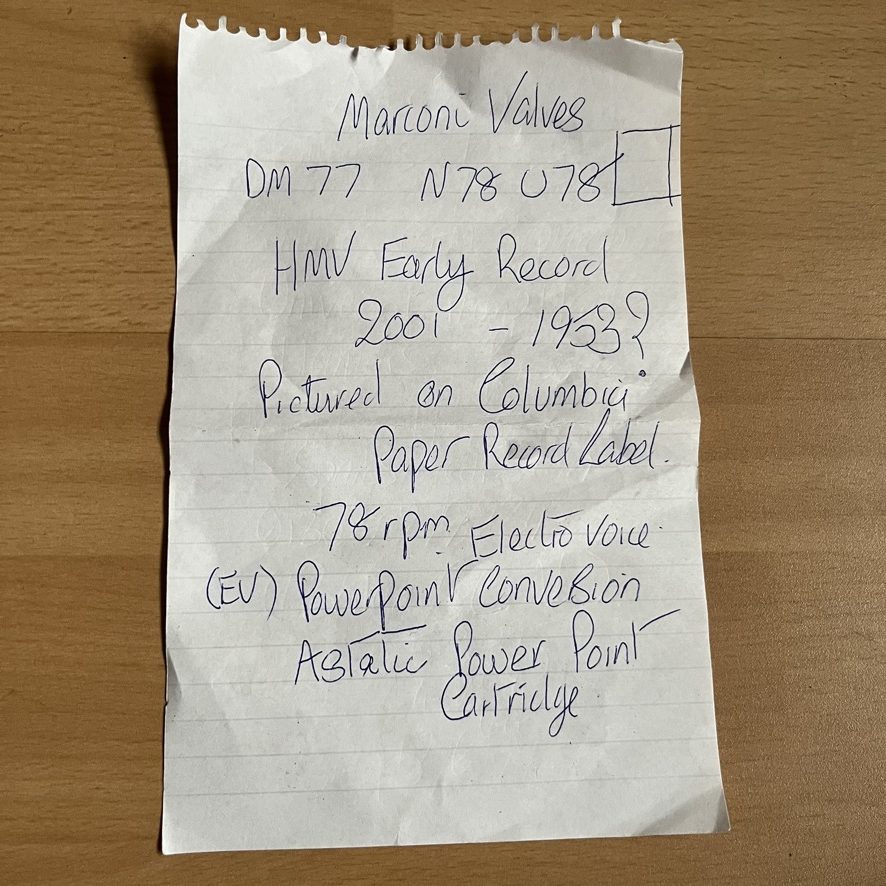 Marconi Valves
DM 77 N78 U78
HMV Early Record
2001 - 1953?
Pictured on Columbia
Paper Record Label.
78 rpm Electro Voice.
(EV) PowerPoint Convesion
Astatic Power Point
Cartridge